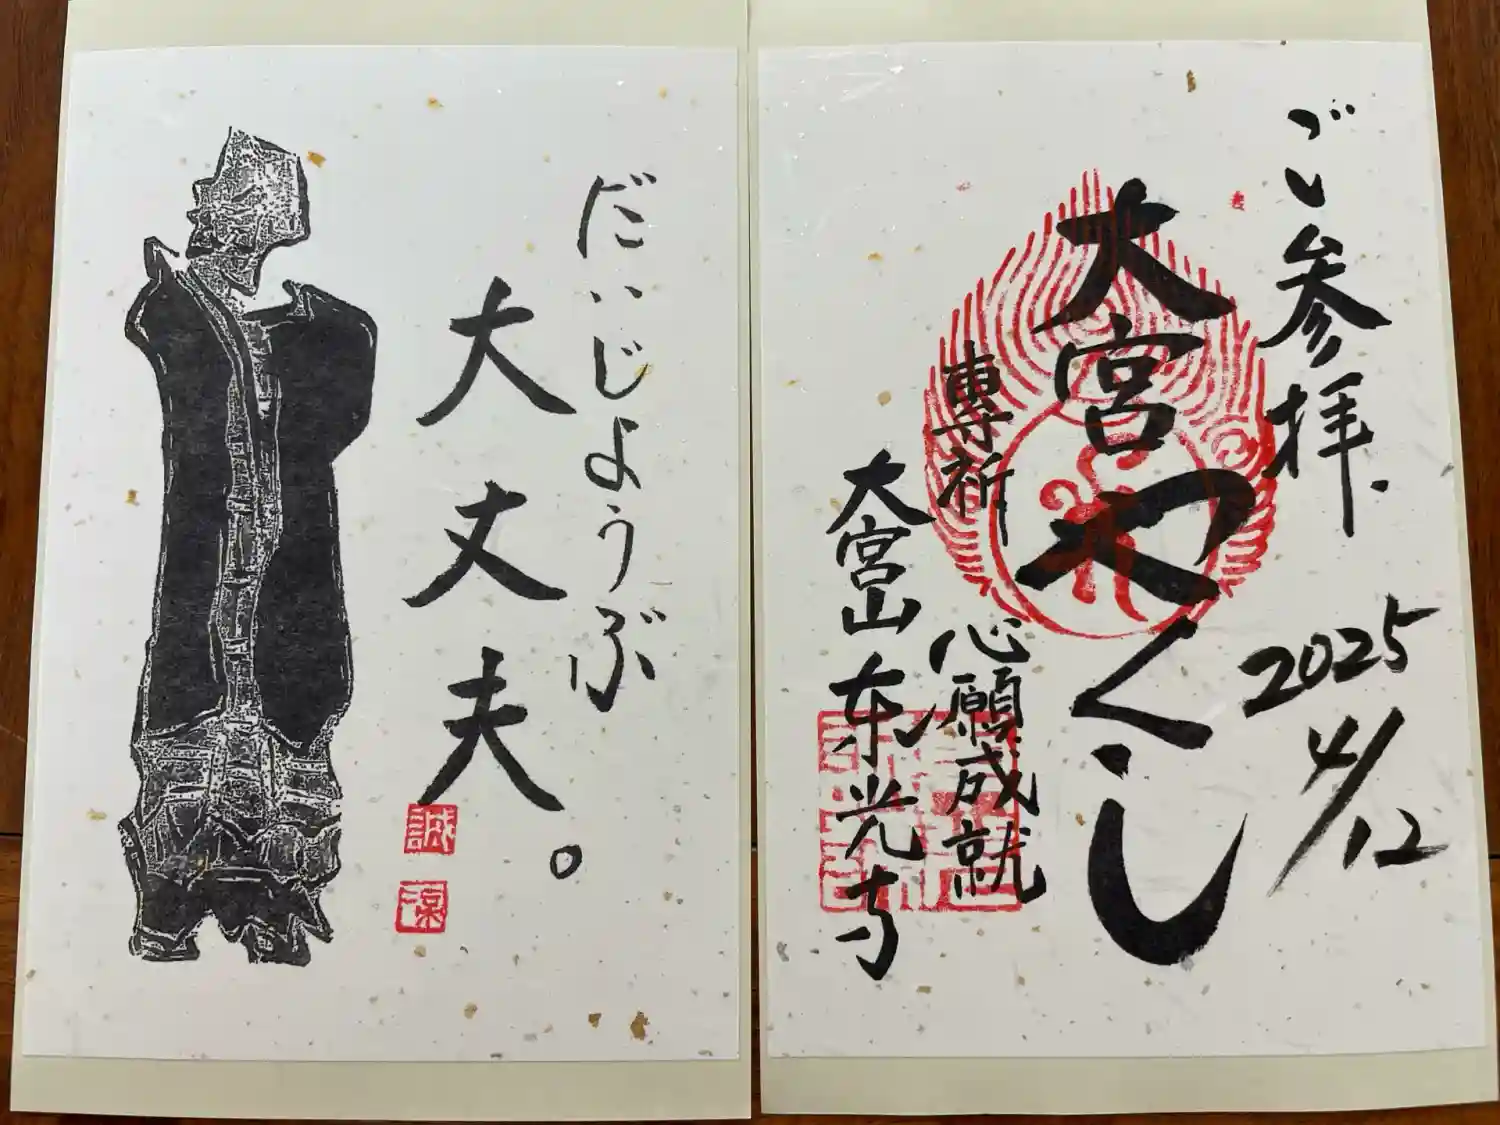 ご参拝.
2025
4/12
大宮やくし
專祈 心願成就
大宮山 东光寺
だいじょうぶ
大丈夫。
誠